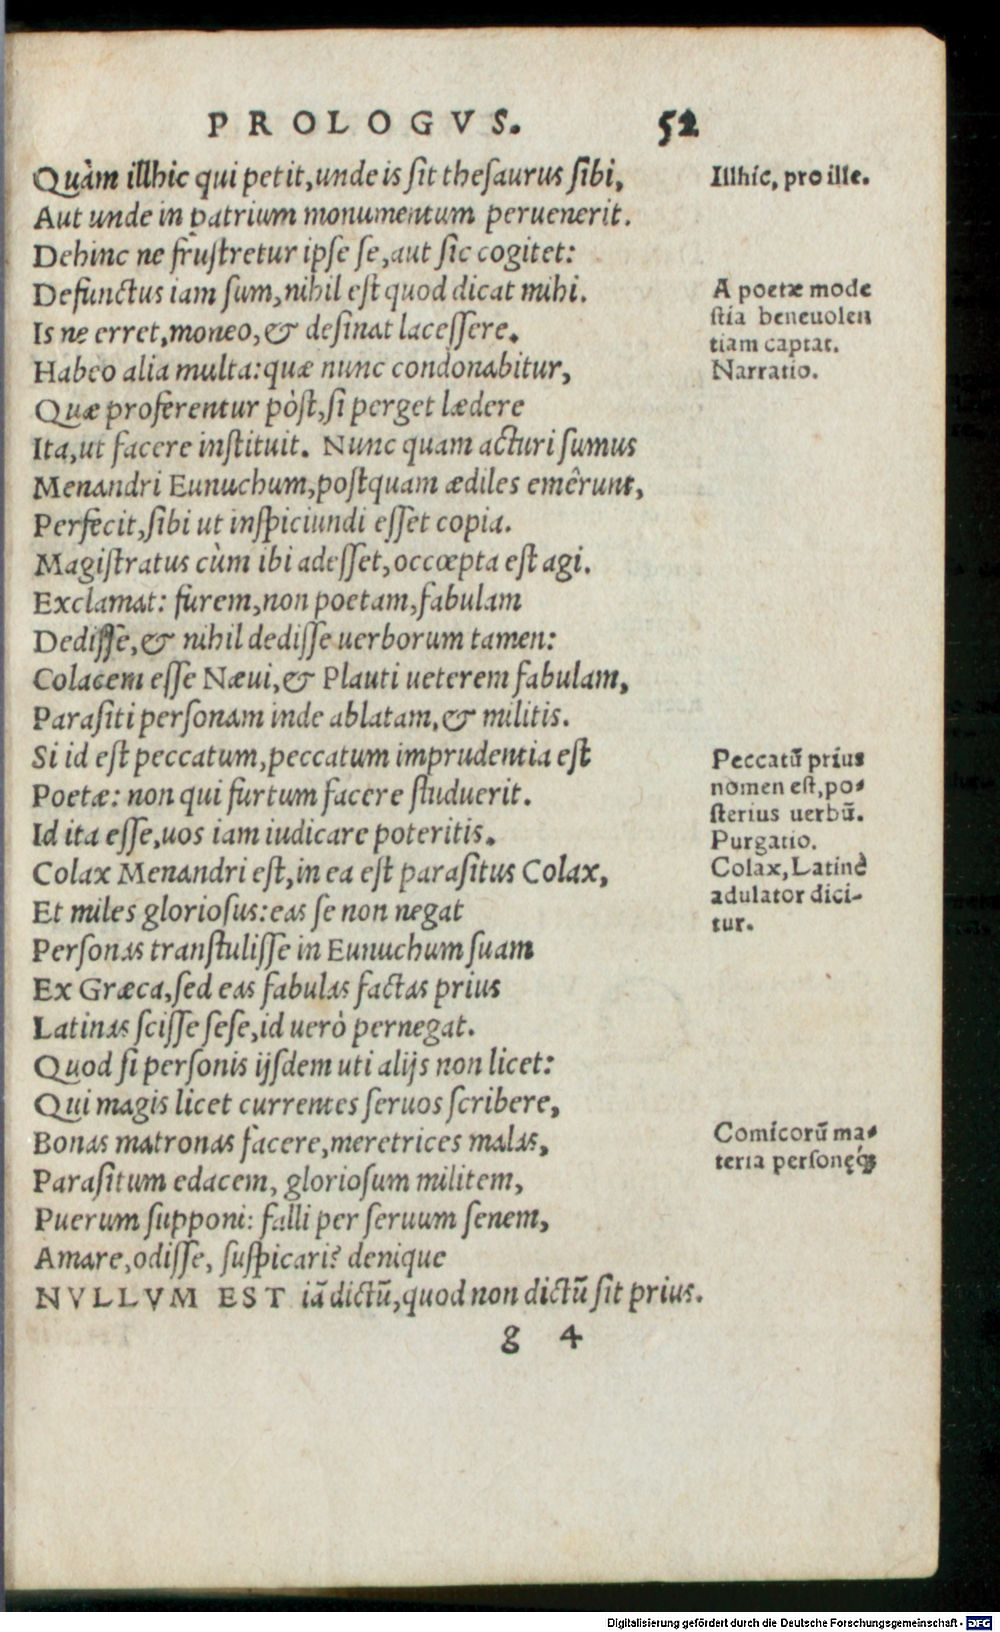 PROLOGVS. 52
Quàm illhic qui petit, unde is sit thesaurus sibi,
Illhic, pro ille.
Aut unde in patrium monumentum peruenerit.
Dehinc ne frustretur ipse se, aut sic cogitet:
Defunctus iam sum, nihil est quod dicat mihi.
A poetæ mode
stia beneuolen
tiam captat.
Narratio.
Is ne erret, moneo, & desinat lacessere.
Habeo alia multa: quæ nunc condonabitur,
Quæ proferentur pòst, si perget lædere
Ita, ut facere instituit. Nunc quam acturi sumus
Menandri Eunuchum, postquam ædiles emêrunt,
Perfecit, sibi ut inspiciundi esset copia.
Magistratus cùm ibi adesset, occœpta est agi.
Exclamat: furem, non poetam, fabulam
Dedisse, & nihil dedisse uerborum tamen:
Colacem esse Næui, & Plauti ueterem fabulam,
Parasiti personam inde ablatam, & militis.
Si id est peccatum, peccatum imprudentia est
Peccatũ prius
nomen est, po-
sterius uerbũ.
Purgatio.
Colax, Latinè
adulator dici-
tur.
Poetæ: non qui furtum facere studuerit.
Id ita esse, uos iam iudicare poteritis.
Colax Menandri est, in ea est parasitus Colax,
Et miles gloriosus: eas se non negat
Personas transtulisse in Eunuchum suam
Ex Græca, sed eas fabulas factas prius
Latinas scisse sese, id uerò pernegat.
Quod si personis ijsdem uti alijs non licet:
Qui magis licet currentes seruos scribere,
Bonas matronas facere, meretrices malas,
Comicorũ ma-
teria personęq́;
Parasitum edacem, gloriosum militem,
Puerum supponi: falli per seruum senem,
Amare, odisse, suspicari? denique
NVLLVM EST iã dictũ, quod non dictũ sit prius.
g 4
Digitalisierung gefördert durch die Deutsche Forschungsgemeinschaft - DFG